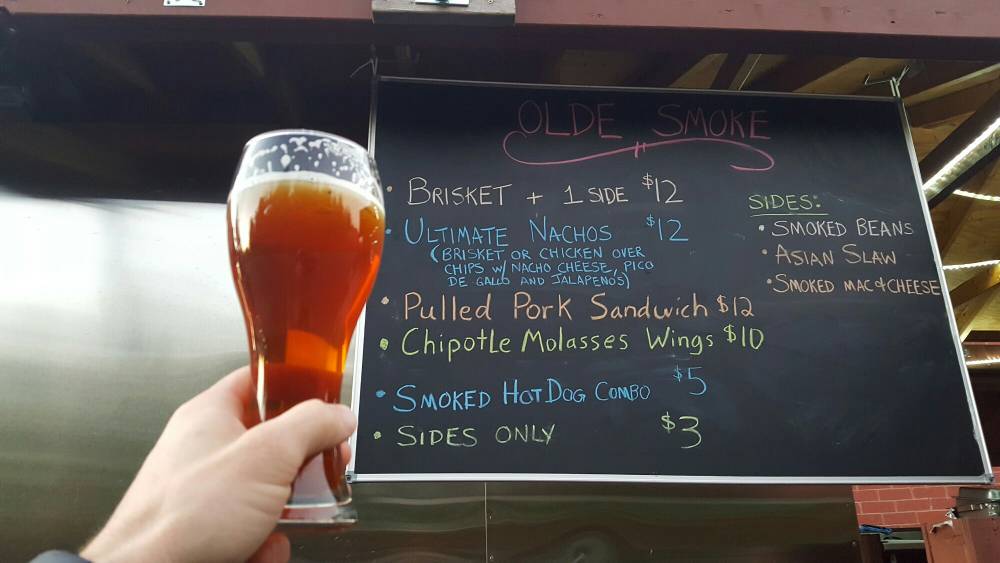 OLDE SMOKE
• BRISKET + 1 SIDE $12
• ULTIMATE NACHOS $12
(BRISKET OR CHICKEN OVER
CHIPS W/ NACHO CHEESE, PICO
DE GALLO AND JALAPENOS)
• Pulled Pork Sandwich $12
• Chipotle Molasses Wings $10
• SMOKED HOT DOG COMBO $5
• SIDES ONLY $3
SIDES:
• SMOKED BEANS
• ASIAN SLAW
• SMOKED MAC & CHEESE